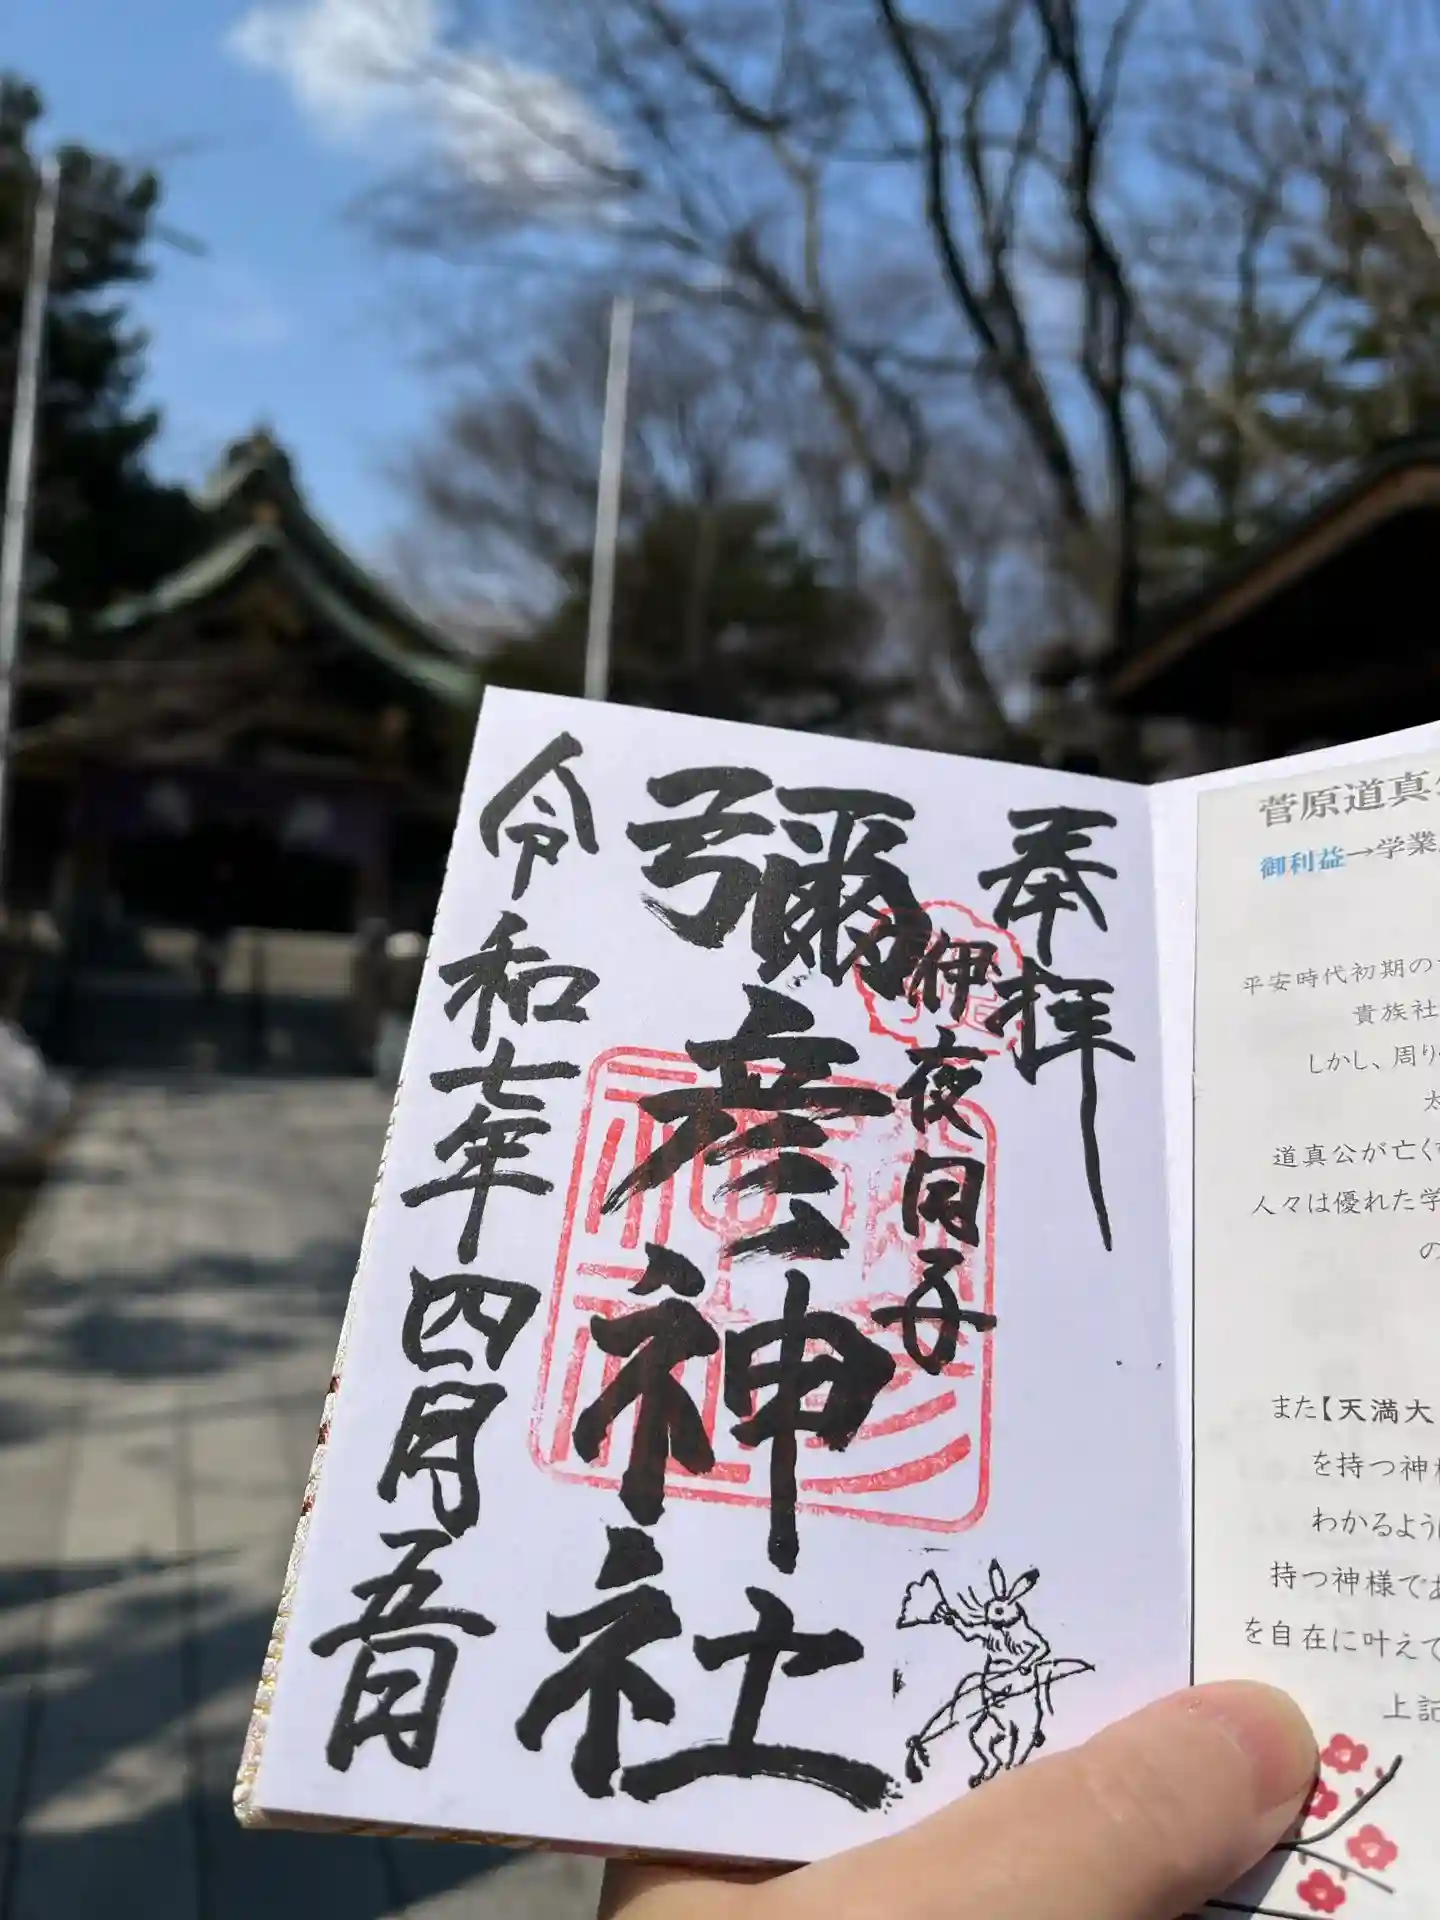 奉拝
伊夜日子
彌彦神社
令和七年四月五日
菅原道真
御利益→学業
平安時代初期の
貴族社
しかし、周り
太
道真公が亡く
人々は優れた学
の
また【天満大
を持つ神
わかるよう
持つ神様であ
を自在に叶えて
上記